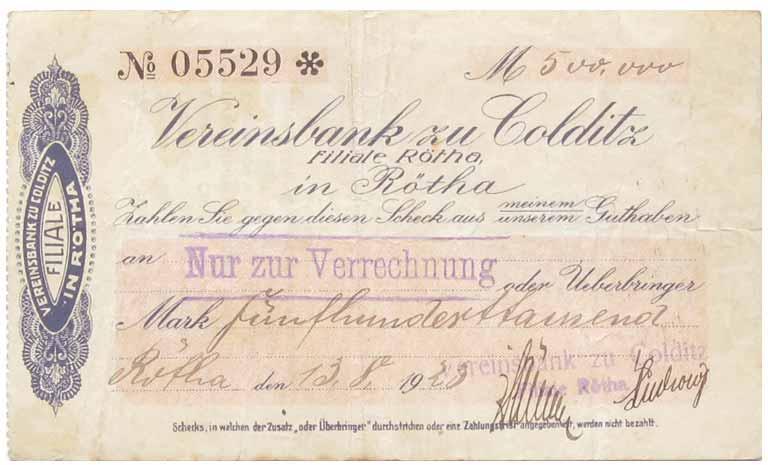 № 05529 * M 500.000
Vereinsbank zu Colditz
Filiale Rötha,
in Rötha
Zahlen Sie gegen diesen Scheck aus meinem unserem Guthaben
an Nur zur Verrechnung oder Ueberbringer
Mark fünfhunderttausend
Vereinsbank zu Colditz
Rötha den 13. 8. 1923
Filiale Rötha
Ludwig
Schecks, in welchen der Zusatz „oder Überbringer" durchstrichen oder eine Zahlungsfrist angegeben ist, werden nicht bezahlt.
VEREINSBANK ZU COLDITZ
FILIALE
IN RÖTHA